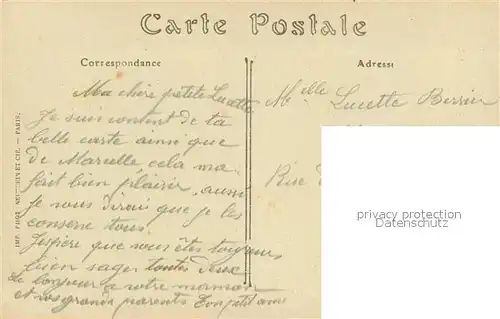 Carte Postale
Correspondance
Adresse
Ma chère petite Lucette
Je suis content de ta
belle carte ainsi que
de Marcelle cela ma
fait bien plaisir aussi
je vous dirai que je les
conserve tous.
J'espère que vous êtes toujours
bien sages toutes deux
Le bonjour a votre maman
et vos grands parents Ton petit ami
Melle Lucette Berrier
Rue
privacy protection
Datenschutz
PARIS.